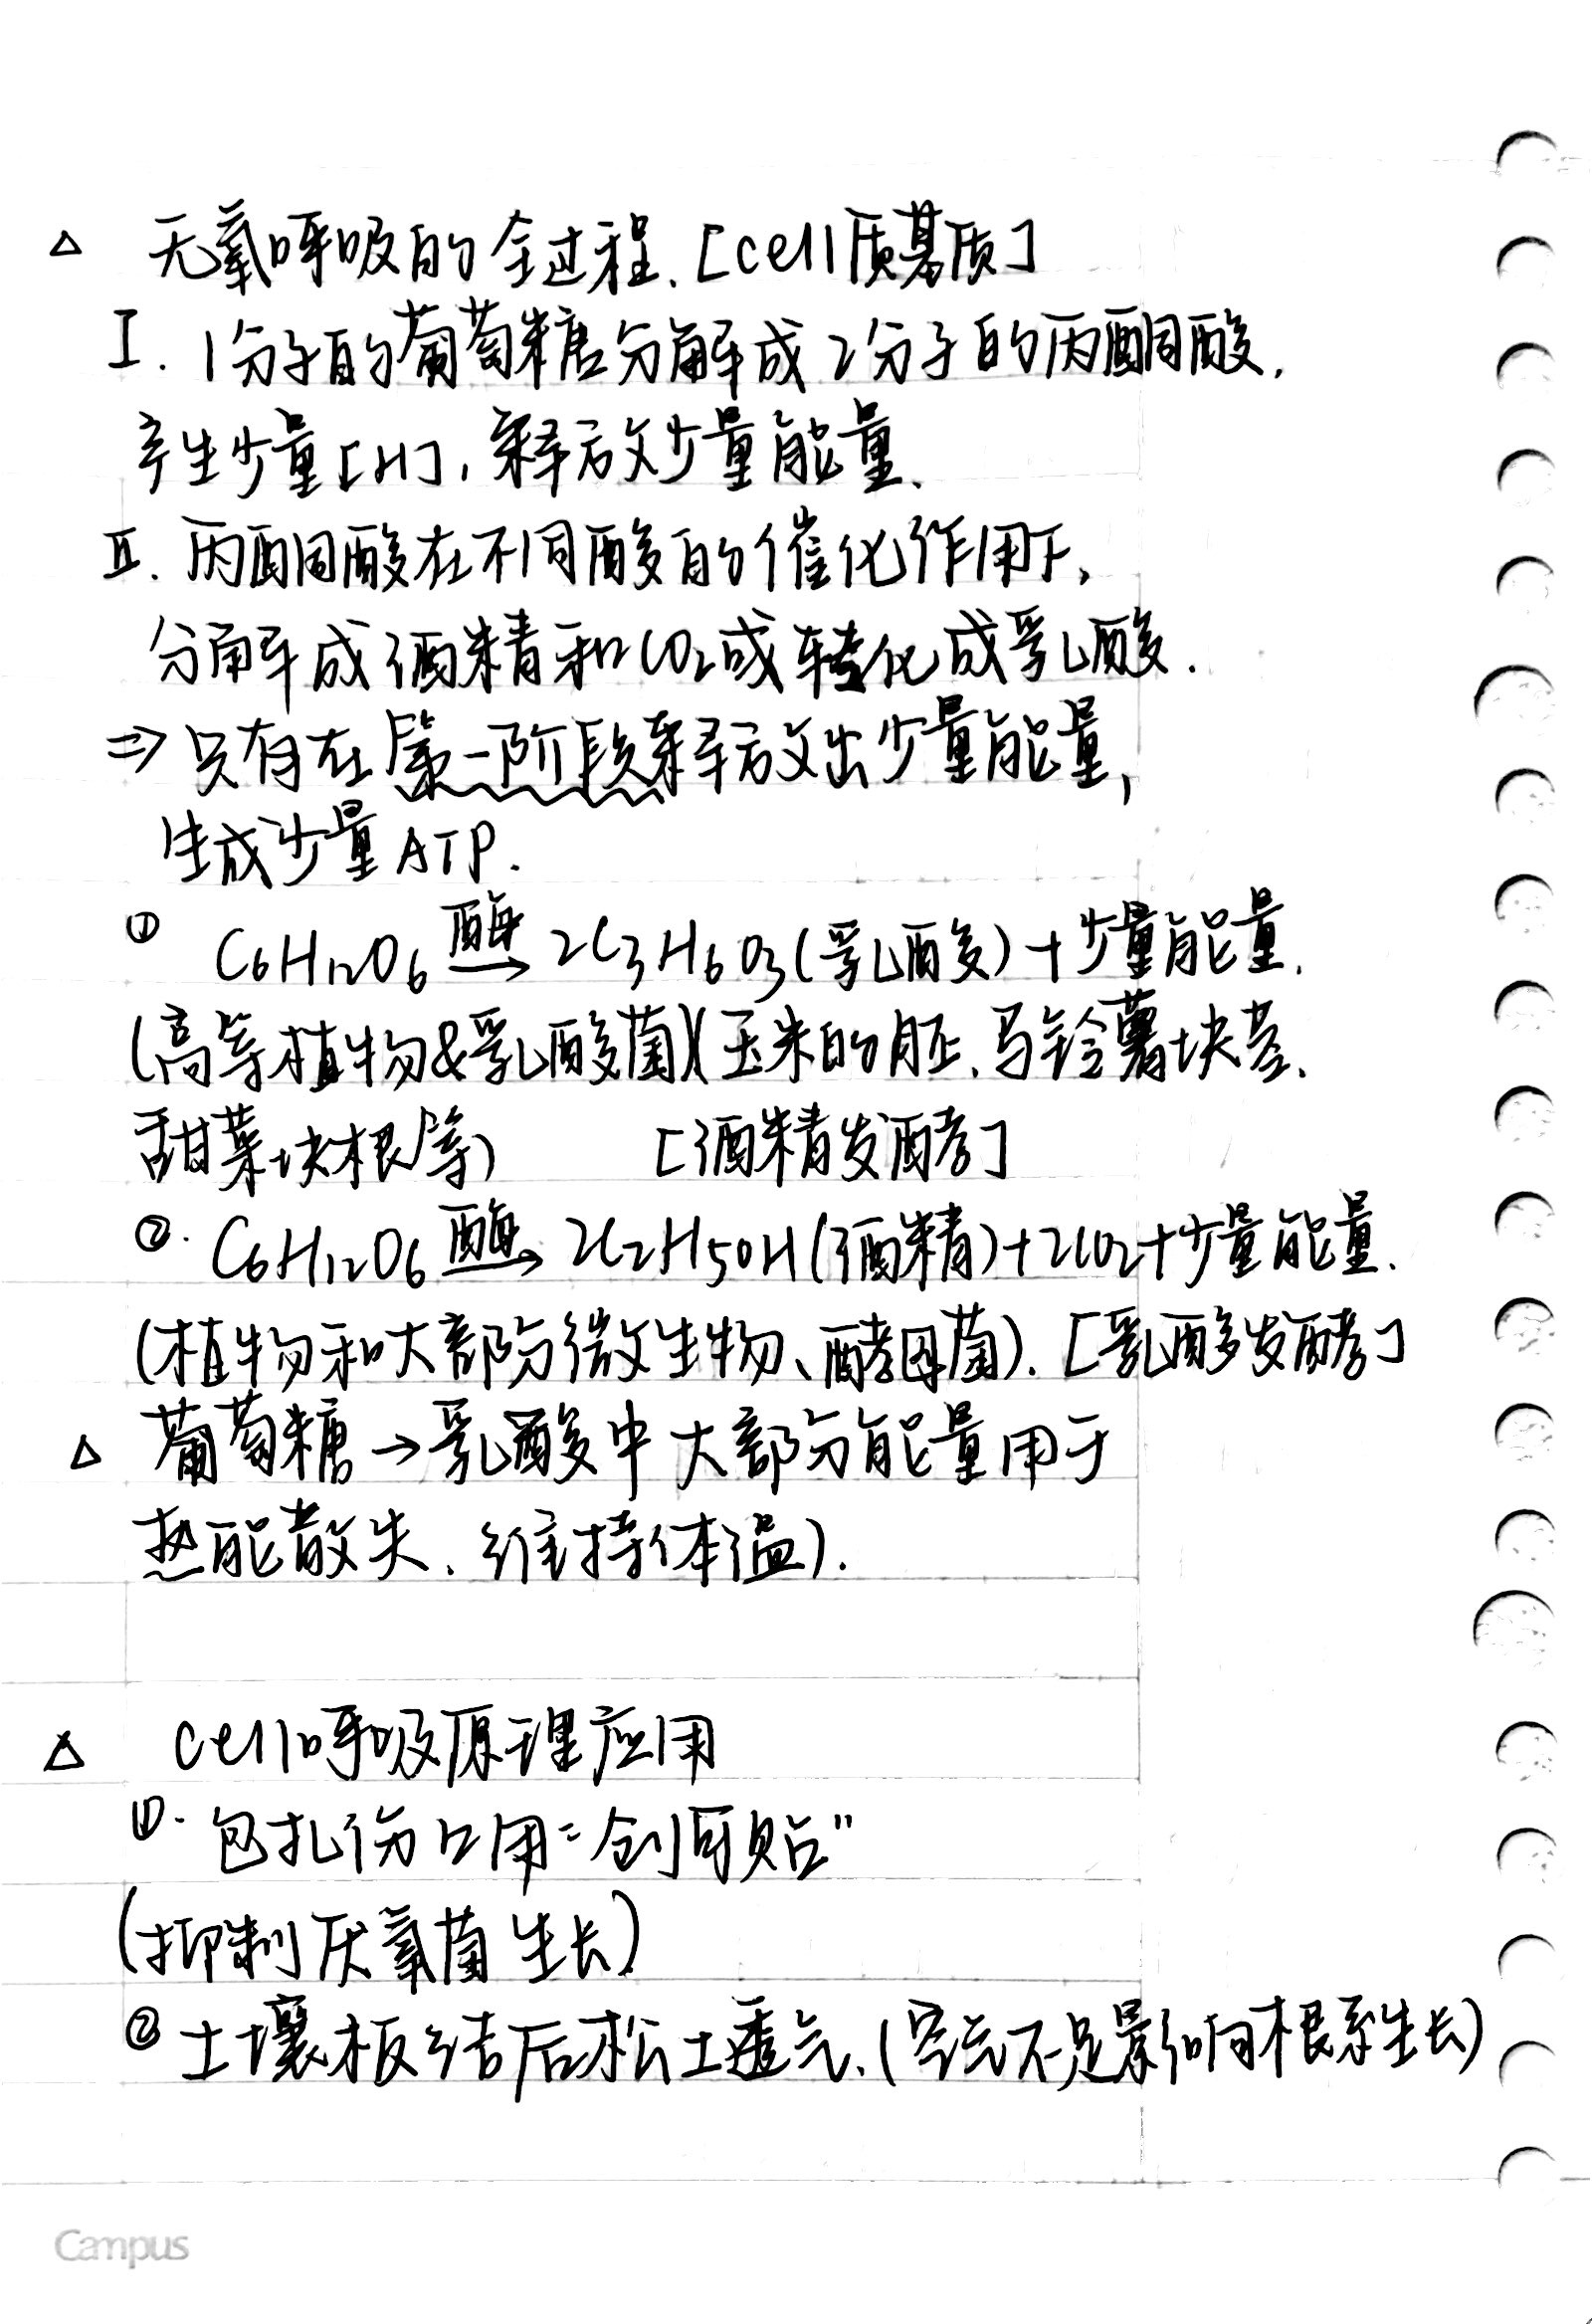 △ 无氧呼吸的全过程.[cell质基质]
I. 1分子的葡萄糖分解成2分子的丙酮酸.
产生少量[H],释放少量能量.
II. 丙酮酸在不同酸的催化作用下,
分解成酒精和CO₂或转化成乳酸.
⇒只有在第一阶段释放出少量能量,
生成少量ATP.
① C₆H₁₂O₆ 酶→ 2C₃H₆O₃(乳酸)+少量能量.
(高等植物&乳酸菌)(玉米的胚、马铃薯块茎、
甜菜块根等) [酒精发酵]
②. C₆H₁₂O₆ 酶→ 2C₂H₅OH(酒精)+2CO₂+少量能量.
(植物和大部分微生物、酵母菌).[乳酸发酵]
△ 葡萄糖→乳酸中大部分能量用于
热能散失、维持体温).
△ cell呼吸原理应用
①. 包扎伤口用"创可贴"
(抑制厌氧菌生长)
② 土壤板结后松土透气.(空气不足影响根系生长)
Campus